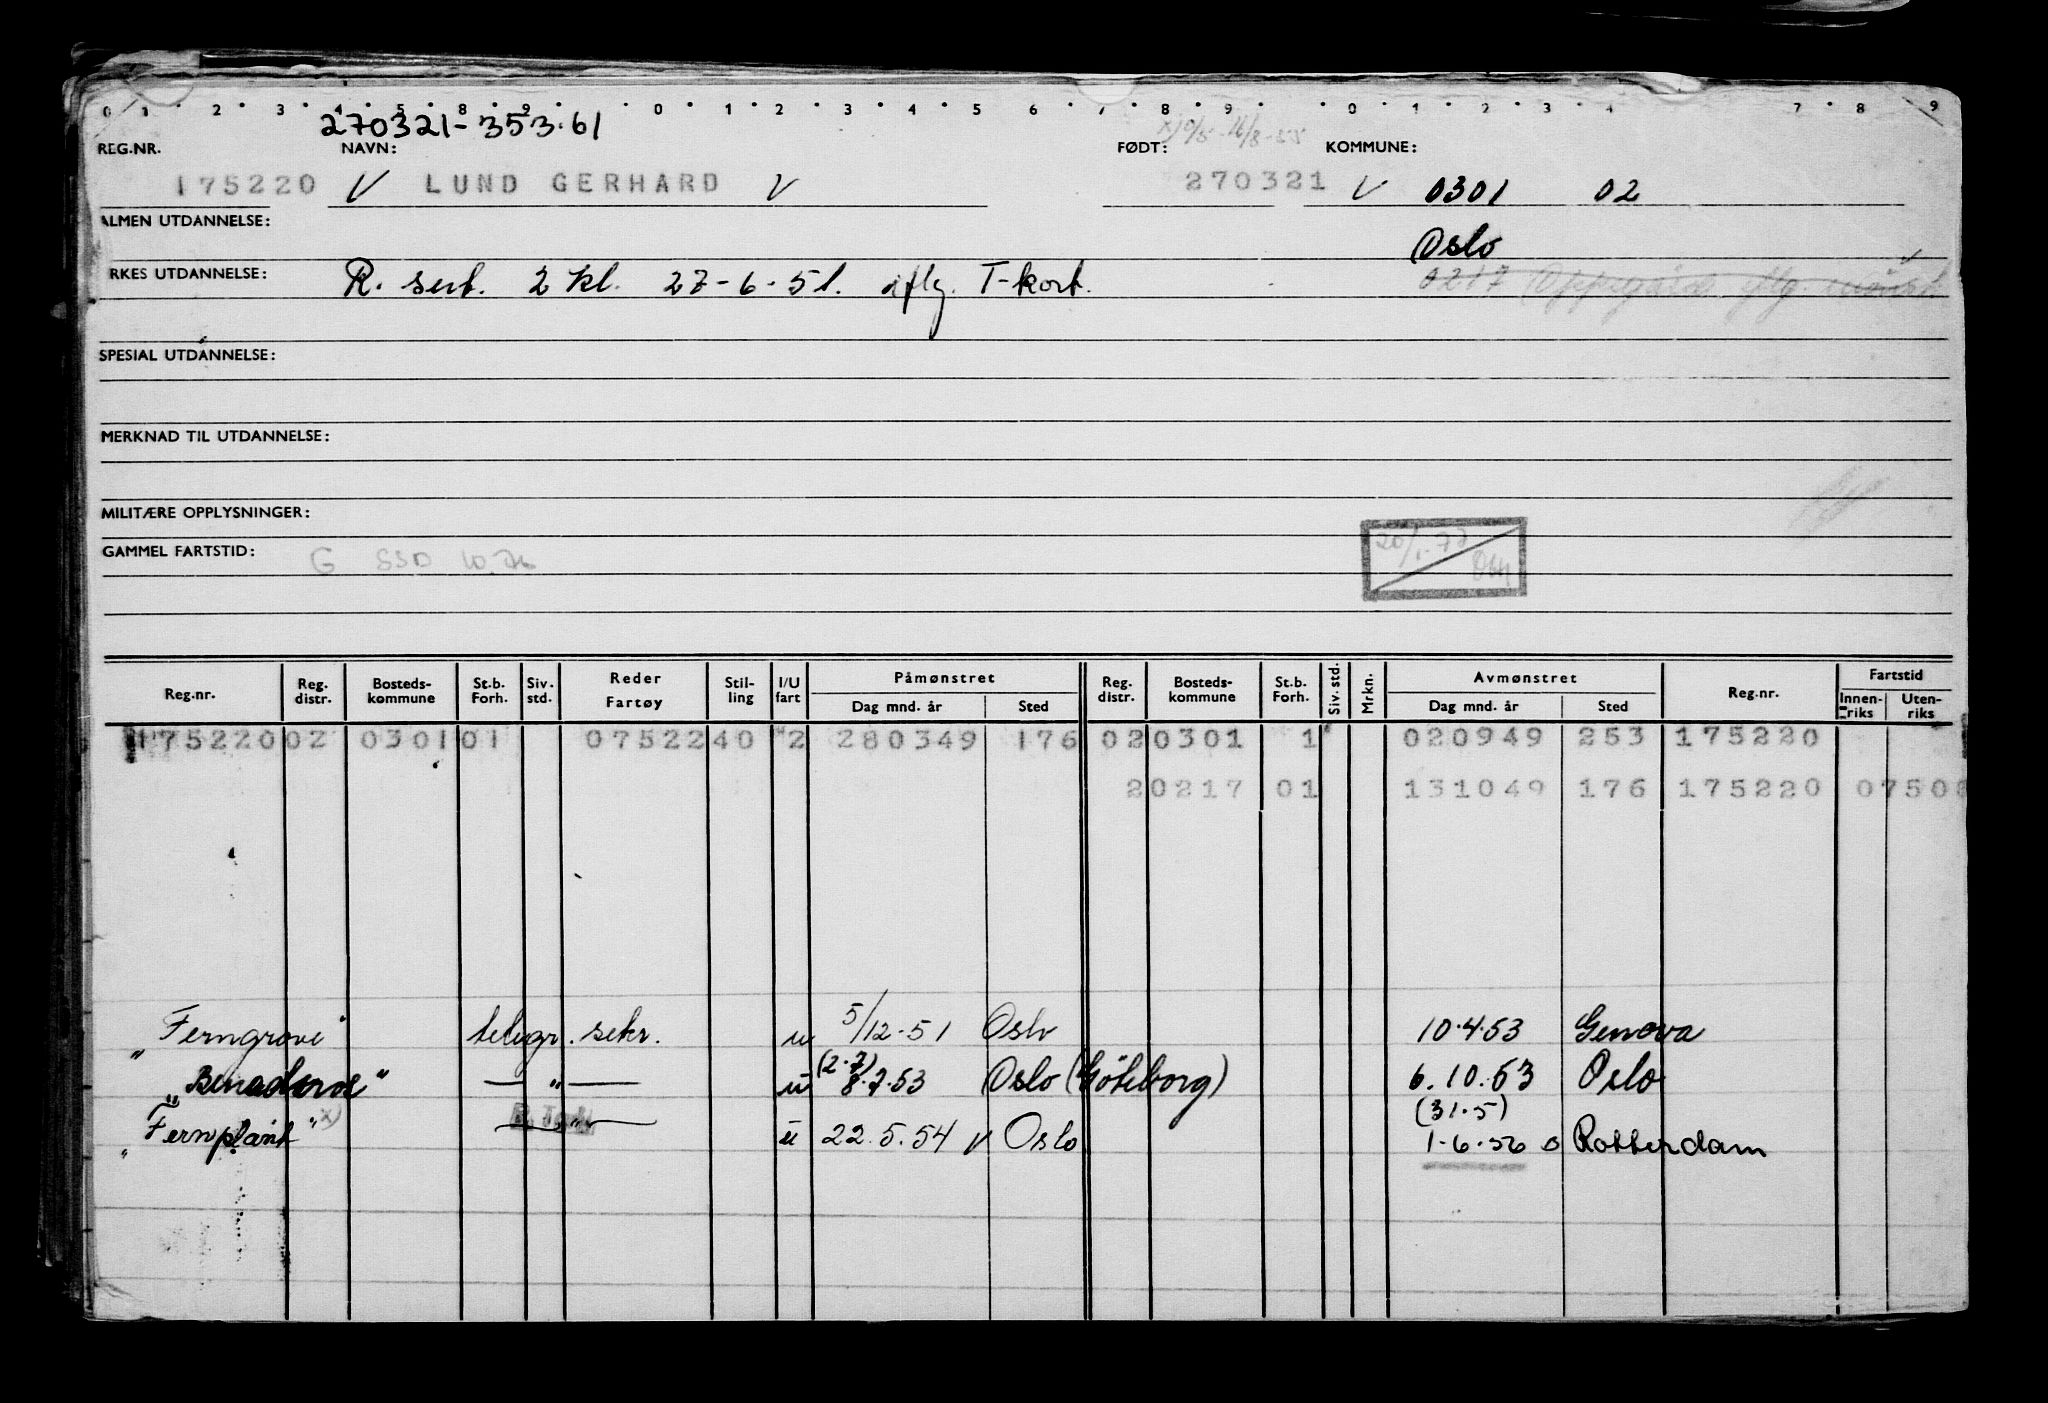 0 1 2 3 4 5 8 9 0 1 2 3 4 5 6 7 8 9 0 1 2 3 4 7 8 9
270321-353.61
REG.NR. NAVN: FØDT: KOMMUNE:
175220 V LUND GERHARD V 270321 V 0301 02
ALMEN UTDANNELSE:
Oslo
RKES UTDANNELSE: R. sert. 2 kl. 27-6-51. iflg. T-kort. 0217 Oppegård iflg.
SPESIAL UTDANNELSE:
MERKNAD TIL UTDANNELSE:
MILITÆRE OPPLYSNINGER:
GAMMEL FARTSTID: G SSD 10.76
20/1-77
Reg.nr. Reg. distr. Bosteds-kommune St.b. Forh. Siv. std. Reder Fartøy Stil-ling I/U fart Påmønstret Dag mnd. år Sted Reg. distr. Bosteds-kommune St.b. Forh. Siv. std. Mrkn. Avmønstret Dag mnd. år Sted Reg.nr. Fartstid Innen-riks Uten-riks
175220 02 0301 01 07522 40 2 280349 176 02 0301 1 020949 253 175220
2 0217 01 131049 176 175220 0750
"Ferngrove" telegr. sekr. u 5/12-51 Oslo 10.4.53 Genova
"Benaderos" — " — u (2.7) 8.7.53 Oslo (Göteborg) 6.10.53 Oslo
"Fernplant" x) u 22.5.54 V Oslo (31.5) 1.6.56 Rotterdam